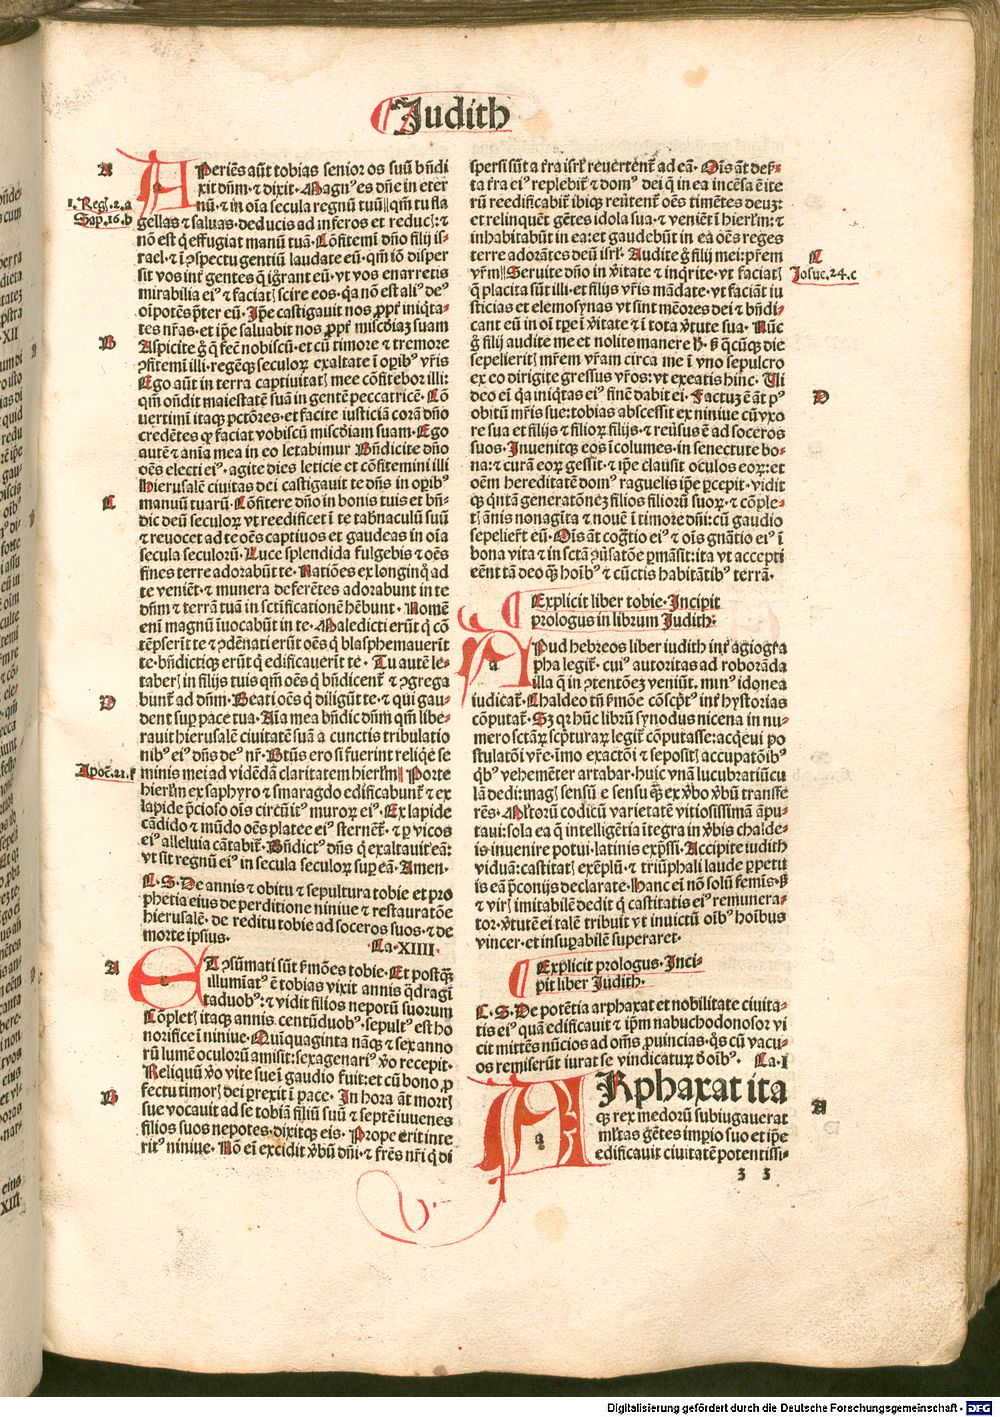 Judith
A
APeriēs aūt tobias senior os suū bn̄di
xit dn̄m·⁊ dixit·Magn⁹ es dn̄e in eter
1.Reg̃.2.a
nū·⁊ in oīa secula regnū tuū||qm̄ tu fla
Sap.16.b
gellas ⁊ saluas·deducis ad inferos et reducis:⁊
nō est q̄ effugiat manū tuā·Cōfitemī dn̄o filij is-
rael·⁊ ī ꝯspectu gentiū laudate eū·qm̄ iō disper
sit vos int̄ gentes q̄ īgrāt eū·vt vos enarretis
mirabilia ei⁹·⁊ faciatꝭ scire eos·qa nō est ali⁹ de⁹
oīpotēs p̄ter eū·Ip̄e castigauit nos ꝓpt̄ iniq̄ta-
tes nr̄as·et ip̄e saluabit nos ꝓpt̄ miscdiaꝫ suam
B
Aspicite g̊ q̄ fec̄ nobiscū·et cū timore ⁊ tremore
ꝯfitemini illi·regēqꝫ seculoꝝ exaltate ī opib⁹ vr̄is
Ego aūt in terra captiuitatꝭ mee cōfitebor illi:
qm̄ on̄dit maiestatē suā in gentē peccatricē·Cō
uertimī itaqꝫ pctōres·et facite iusticiā corā dn̄o
credētes qꝫ faciat vobiscū miscdiam suam·Ego
autē ⁊ anīa mea in eo letabimur Bn̄dicite dn̄o
oēs electi ei⁹·agite dies leticie et cōfitemini illi
Hierusalē ciuitas dei castigauit te dn̄s in opib⁹
C
manuū tuarū·Cōfitere dn̄o in bonis tuis et bn̄-
dic deū seculoꝝ vt reedificet ī te tab̄naculū suū
⁊ reuocet ad te oēs captiuos et gaudeas in oīa
secula seculorū·Luce splendida fulgebis ⁊ oēs
fines terre adorabūt te·Natiōes ex longinq̊ ad
te veniēt·⁊ munera deferētes adorabunt in te
dn̄m ⁊ terrā tuā in sctīficationē hēbunt·Nomē
enī magnū īuocabūt in te·Maledicti erūt q̄ cō
tēpserīt te ⁊ ꝯdēnati erūt oēs q̄ blasphemauerīt
te·bn̄dictiqꝫ erūt q̄ edificauerīt te·Tu autē le-
taberꝭ in filijs tuis qm̄ oēs q̄ bn̄dicent̄ ⁊ ꝯgrega
D
bunt̄ ad dn̄m·Beati oēs q̄ diligūt te·⁊ qui gau-
dent suꝑ pace tua·Aīa mea bn̄dic dn̄m qm̄ libe-
rauit hierusalē ciuitatē suā a cunctis tribulatio
nib⁹ ei⁹ dn̄s de⁹ nr̄·Btūs ero si fuerint reliq̄e se
Apoc̄.21.f
minis mei ad vidēdā claritatem hierlm̄||Porte
hierlm̄ ex saphyro ⁊ smaragdo edificabunt̄ ⁊ ex
lapide p̄cioso oīs circūit⁹ muroꝝ ei⁹·Ex lapide
cādido ⁊ mūdo oēs platee ei⁹ sternēt̄·⁊ ꝑ vicos
ei⁹ alleluia cātabit̄·Bn̄dict⁹ dn̄s q̄ exaltauit eā:
vt sit regnū ei⁹ in secula seculoꝝ suꝑ eā·Amen·
C·S·De annis ⁊ obitu ⁊ sepultura tobie et pro
phetia eius de perditione niniue ⁊ restauratōe
hierusalē·de reditu tobie ad soceros suos·⁊ de
morte ipsius· Ca·XIIII·
A
ET ꝯsūmati sūt s̄mōes tobie·Et postqꝫ
illumiat⁹ ē tobias vixit annis q̄dragī
taduob⁹:⁊ vidit filios nepotū suorum
Cōpletꝭ itaqꝫ annis centūduob⁹·sepult⁹ est ho
norifice ī niniue·Quīquaginta nāqꝫ ⁊ sex anno
rū lumē oculorū amisit:sexagenari⁹ v̊o recepit·
Reliquū v̊o vite sue ī gaudio fuit:et cū bono ꝓ
fectu timorꝭ dei ꝑrexit ī pace·In hora āt mortꝭ
B
sue vocauit ad se tobiā filiū suū ⁊ septē iuuenes
filios suos nepotes·dixitqꝫ eis·Prope erit inte
rit⁹ niniue·Nō eī excidit v̊bū dn̄i·⁊ fr̄es nr̄i q̄ di
spersi sūt a t̄ra isrl̄ reuertent̄ ad eā·Oīs āt des̄-
ta t̄ra ei⁹ replebit̄ ⁊ dom⁹ dei q̄ in ea incēsa ē ite
rū reedificabit̄ ibiqꝫ reūtent̄ oēs timētes deuꝫ:
et relinquēt gētes idola sua·⁊ veniēt ī hierlm̄:⁊
inhabitabūt in ea:et gaudebūt in ea oēs reges
C
terre adorātes deū isrl̄·Audite g̊ filij mei:pr̄em
Josue.24.c
vr̄m||Seruite dn̄o in v̊itate ⁊ inqrite·vt faciatꝭ
q̄ placita sūt illi·et filijs vr̄is mādate·vt faciāt iu
sticias et elemosynas vt sint mēores dei ⁊ bn̄di-
cant eū in oī tp̄e ī v̊itate ⁊ ī tota v̊tute sua·Nūc
g̊ filij audite me et nolite manere h̄·s̄ q̄cūqꝫ die
sepelieritꝭ mr̄em vr̄am circa me ī vno sepulcro
ex eo dirigite gressus vr̄os:vt exeatis hinc·Ui
D
deo eī qa iniqtas ei⁹ finē dabit ei·Factuꝫ ē āt p⁹
obitū mr̄is sue:tobias abscessit ex niniue cū vxo
re sua et filijs ⁊ filioꝝ filijs·⁊ reūsus ē ad soceros
suos·Inuenitqꝫ eos īcolumes·in senectute bo-
na:⁊ curā eoꝝ gessit·⁊ ip̄e clausit oculos eoꝝ:et
oēm hereditatē dom⁹ raguelis ip̄e ꝑcepit·vidit
qꝫ qntā generatōneꝫ filios filiorū suoꝝ·⁊ cōple-
tꝭ ānis nonagīta ⁊ nouē ī timore dn̄i:cū gaudio
sepelier̄t eū·Oīs āt cog̃tio ei⁹ ⁊ oīs gn̄atio ei⁹ ī
bona vita ⁊ in scta ꝯūsatōe ꝑmāsit:ita vt accepti
eēnt tā deo qꝫ hoīb⁹ ⁊ cūctis habitātib⁹ terrā·
Explicit liber tobie·Incipit
prologus in librum Judith:
APud hebreos liber iudith int̄ agiogra
pha legit̄·cui⁹ autoritas ad roborāda
illa q̄ in ꝯtentōeꝫ veniūt·min⁹ idonea
iudicat̄·Chaldeo tn̄ s̄mōe cōscpt⁹ int̄ hystorias
cōputat̄·Sꝫ qr hūc librū synodus nicena in nu-
mero sctāꝝ scpturaꝝ legit̄ cōputasse:acqeui po
stulatōi vr̄e·īmo exactōi ⁊ sepositꝭ accupatōib⁹
qb⁹ vehemēter artabar·huic vnā lucubratiūcu
lā dedi:magꝭ sensū e sensu qꝫ ex v̊bo v̊bū transfe
rēs·Mltorū codicū varietatē vitiosissimā āpu-
taui:sola ea q̄ intelligētia ītegra in v̊bis chalde-
is inuenire potui·latinis exp̄ssi·Accipite iudith
viduā:castitatꝭ exēplū·⁊ triūphali laude ꝑpetu
is eā p̄conijs declarate·Hanc eī nō solū femīs·s̄
⁊ virꝭ imitabilē dedit q̄ castitatis ei⁹ remunera-
tor·v̊tutē ei talē tribuit vt inuictū oīb⁹ hoībus
vincer̄·et insuꝑabilē superaret·
Explicit prologus·Inci-
pit liber Judith·
C·S·De potētia arphaxat et nobilitate ciuita-
tis ei⁹ quā edificauit ⁊ ip̄m nabuchodonosor vi
cit mittēs nūcios ad om̄s ꝓuincias·qs cū vacu-
os remiserūt iurat se vindicatuꝝ d̊ oīb⁹· Ca·I
ARphaxat ita
A
qꝫ rex medorū subiugauerat
ml̄tas gētes imꝑio suo et ip̄e
edificauit ciuitatē potentissi-
ʒ ʒ
Digitalisierung gefördert durch die Deutsche Forschungsgemeinschaft - DFG